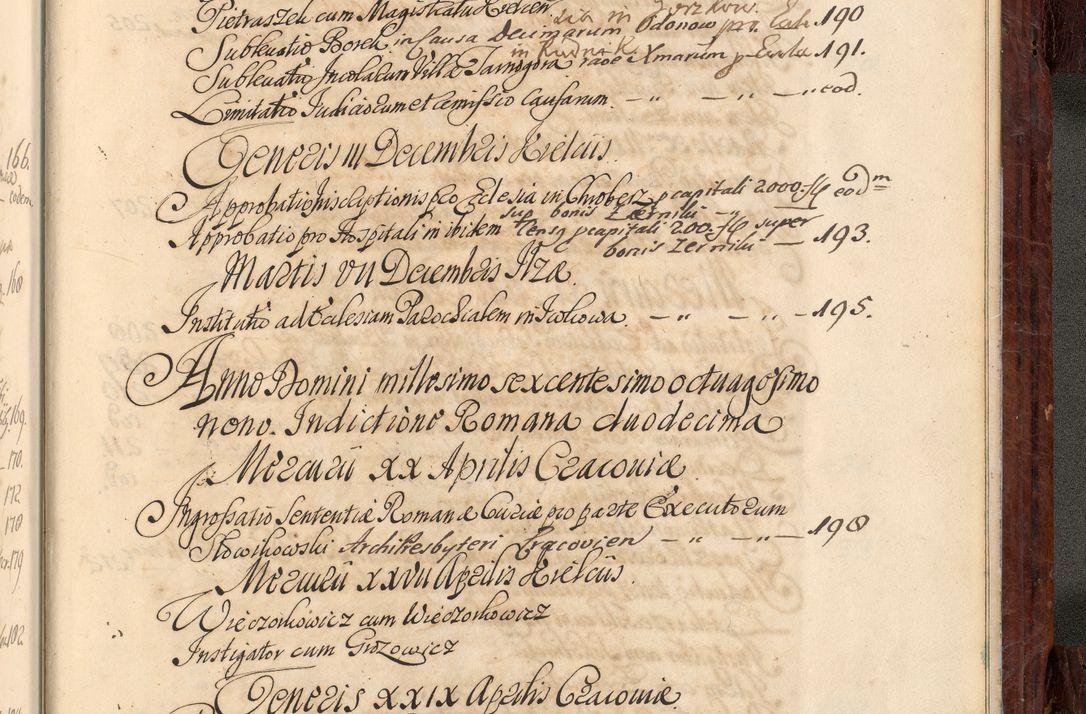 Pietraszek cum Magistratu Kielcen
Subleuatio Borek in Causa Decimarum Odonow pr. Cah. 190
Subleuatio Incolarum Villæ Tarnogora raōe Xmarum p Eccla 191.
Limitatio Iudiciorum et Remissio Causarum. — „ — „ — „ eod.
Veneris III Decembris Kielciis.
Approbatio Inscriptionis pro Ecclesia in Chroberz p capitali 2000 fl eodm
sup bonis Zernik — „ —
Approbatio pro Hospitali in ibidem censq p capitali 200 fl super 193.
bonis Zerniki —
Martis VII Decembris Ilza.
Institutio ad Ecclesiam Parochialem in Iwkowa. — „ — „ — 195.
Anno Domini millesimo sexcentesimo octuagesimo
nono. Indictione Romana duodecima
Mercurii XX Aprilis Cracoviæ
Ingrossatio Sententiæ Romanæ Curiæ pro parte Executorum
Słowikowski Archipresbyteri Cracovien — „ — „ — 198
Mercurii XXVII Aprilis Kielciis.
Wieczorkowicz cum Wieczorkowicz
Instigator cum Grozowicz
Veneris XXIX Aprilis Cracoviæ
166.
eodem
160
169.
170.
172
178
179
182